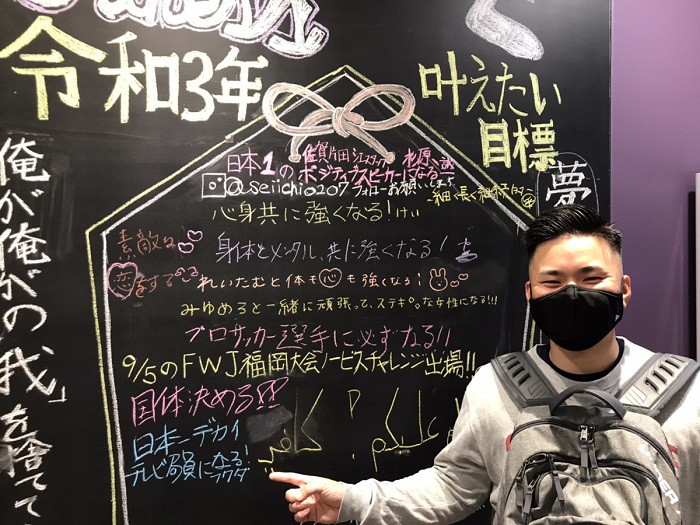 令和3年
叶えたい
目標
夢
日本1の
ポジティブスピーカーになる
@seiichio207 フォローお願いします
心身共に強くなる!けい
素敵な
恋をする
身体とメンタル、共に強くなる!
れいたむと体も心も強くなる!
みゆめろと一緒に頑張って、ステキ。な女性になる!!!
プロサッカー選手に必ずなる!!
9/5のFWJ福岡大会ノービスチャレンジ出場!!
国体決める!!
日本一デカイ
テレビ局員になる!
俺が俺がの「我」を捨てて